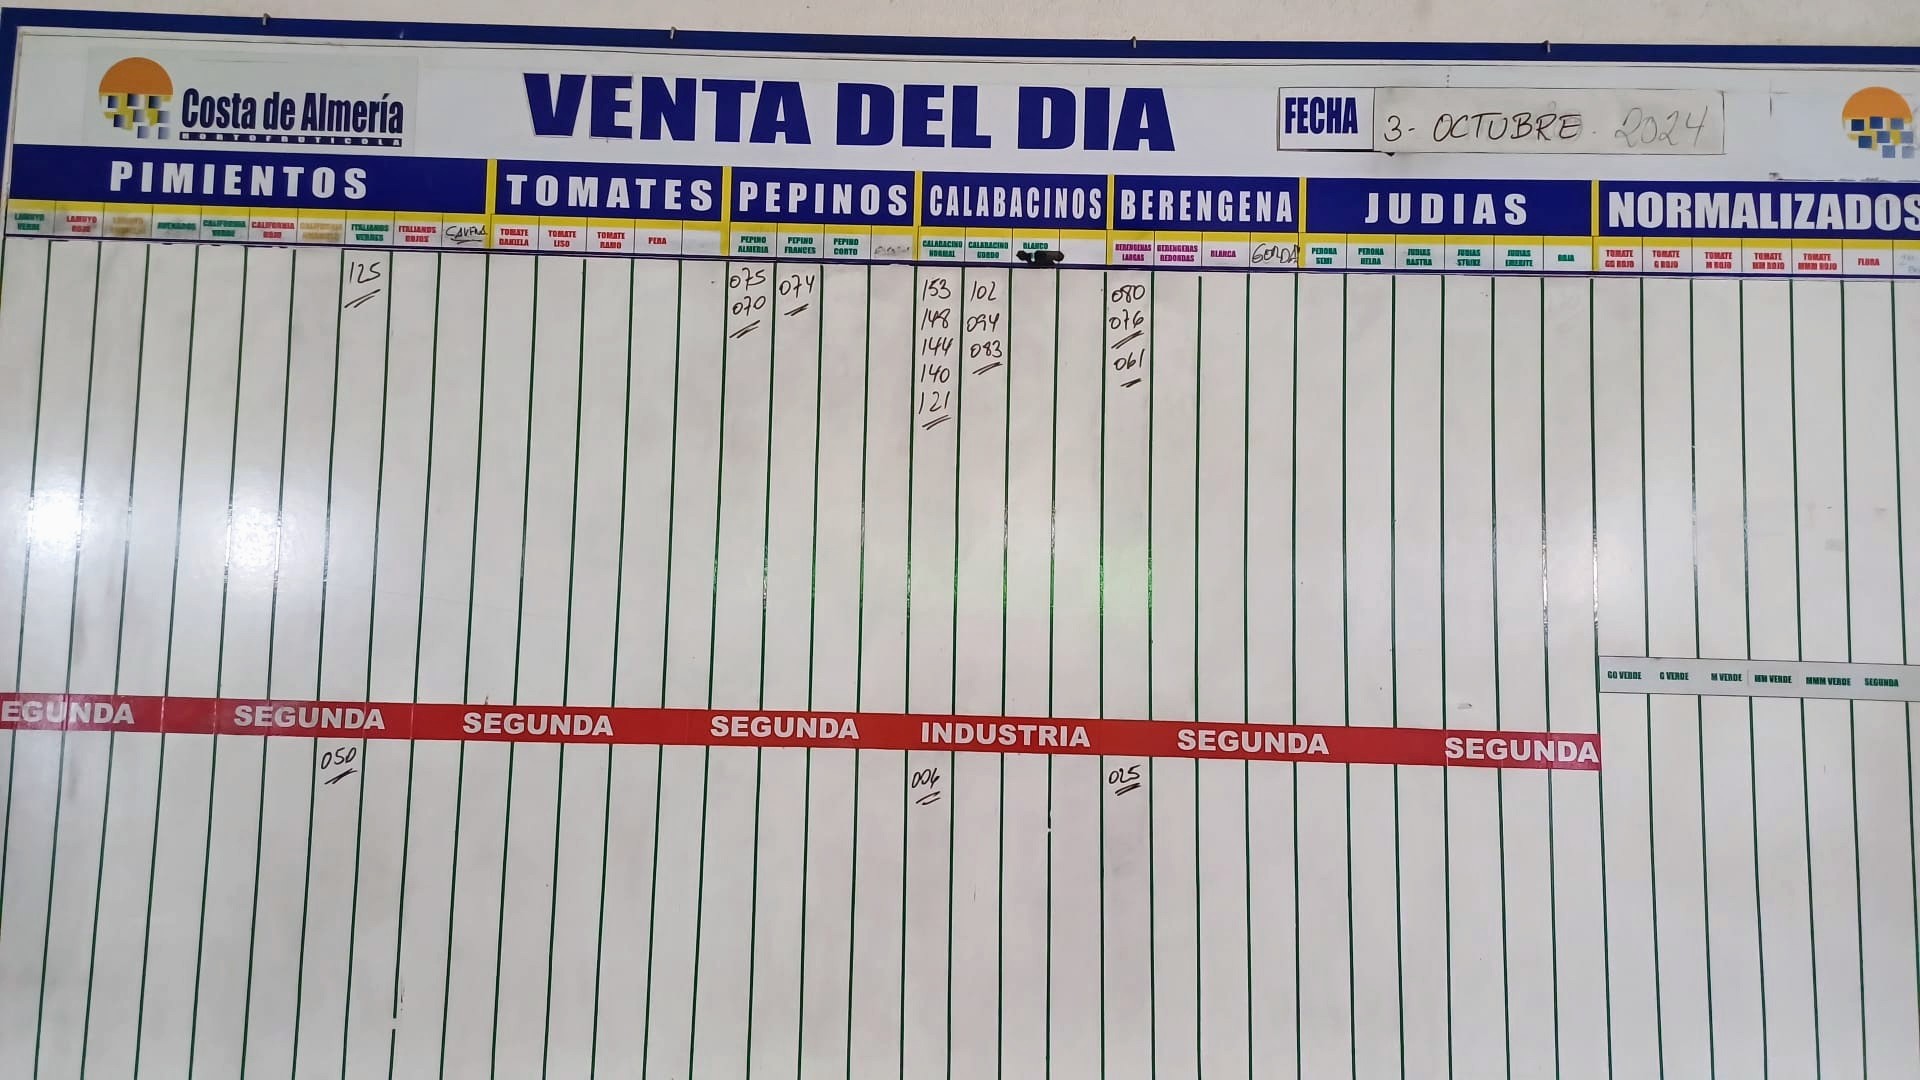 Costa de Almería
HORTOFRUTICOLA
VENTA DEL DIA
FECHA 3 - OCTUBRE - 2024
PIMIENTOS TOMATES PEPINOS CALABACINOS BERENGENA JUDIAS NORMALIZADOS
LAMUYO VERDE
LAMUYO ROJO
CALIFORNIA VERDE
CALIFORNIA ROJO
ITALIANOS VERDES
ITALIANOS ROJOS
TOMATE DANIELA
TOMATE LISO
TOMATE RAMO
PERA
PEPINO ALMERIA
PEPINO FRANCES
PEPINO CORTO
CALABACINO NORMAL
CALABACINO GORDO
BLANCO
BERENGENAS LARGAS
BERENGENAS REDONDAS
BLANCA
GORDA
PERONA SEMI
PERONA HELDA
JUDIAS RASTRA
JUDIAS STRIKE
JUDIAS EMERITE
ROJA
TOMATE GG ROJO
TOMATE G ROJO
TOMATE M ROJO
TOMATE MM ROJO
TOMATE MMM ROJO
FLORA
125 075 074 153 102 080
070 148 094 076
144 083 061
140
121
GG VERDE G VERDE M VERDE MM VERDE MMM VERDE SEGUNDA
EGUNDA SEGUNDA SEGUNDA SEGUNDA INDUSTRIA SEGUNDA SEGUNDA
050 006 025